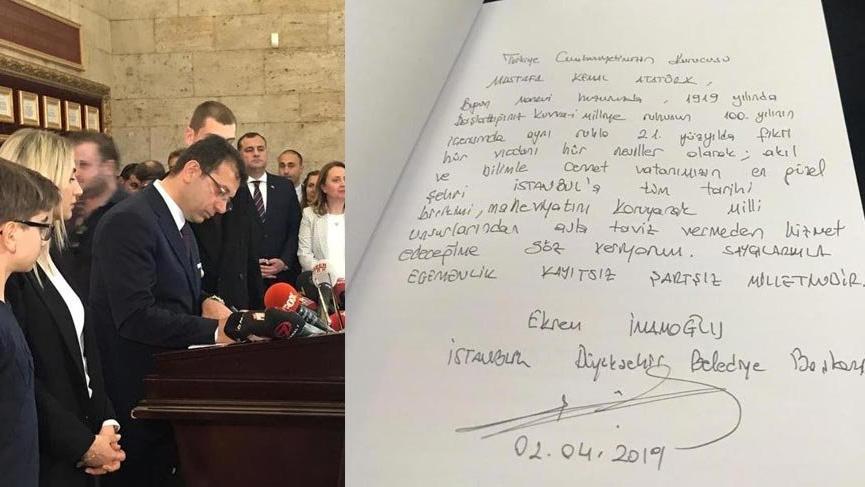 Türkiye Cumhuriyetimizin Kurucusu
MUSTAFA KEMAL ATATÜRK,
Bugün manevi huzurunuzda, 1919 yılında
Başlattığınız Kuvvayi Milliye ruhunun 100. yılının
içerisinde aynı ruhla 21. yüzyılda fikri
hür vicdanı hür nesiller olarak; akıl
ve bilimle cennet vatanımızın en güzel
şehri İSTANBUL'a tüm tarihi
birikimi, maneviyatını koruyarak milli
unsurlarından asla taviz vermeden hizmet
edeceğime söz veriyorum. SAYGILARIMLA
EGEMENLİK KAYITSIZ ŞARTSIZ MİLLETİNDİR.
Ekrem İMAMOĞLU
İSTANBUL Büyükşehir Belediye Başkanı
02.04.2019
FOX